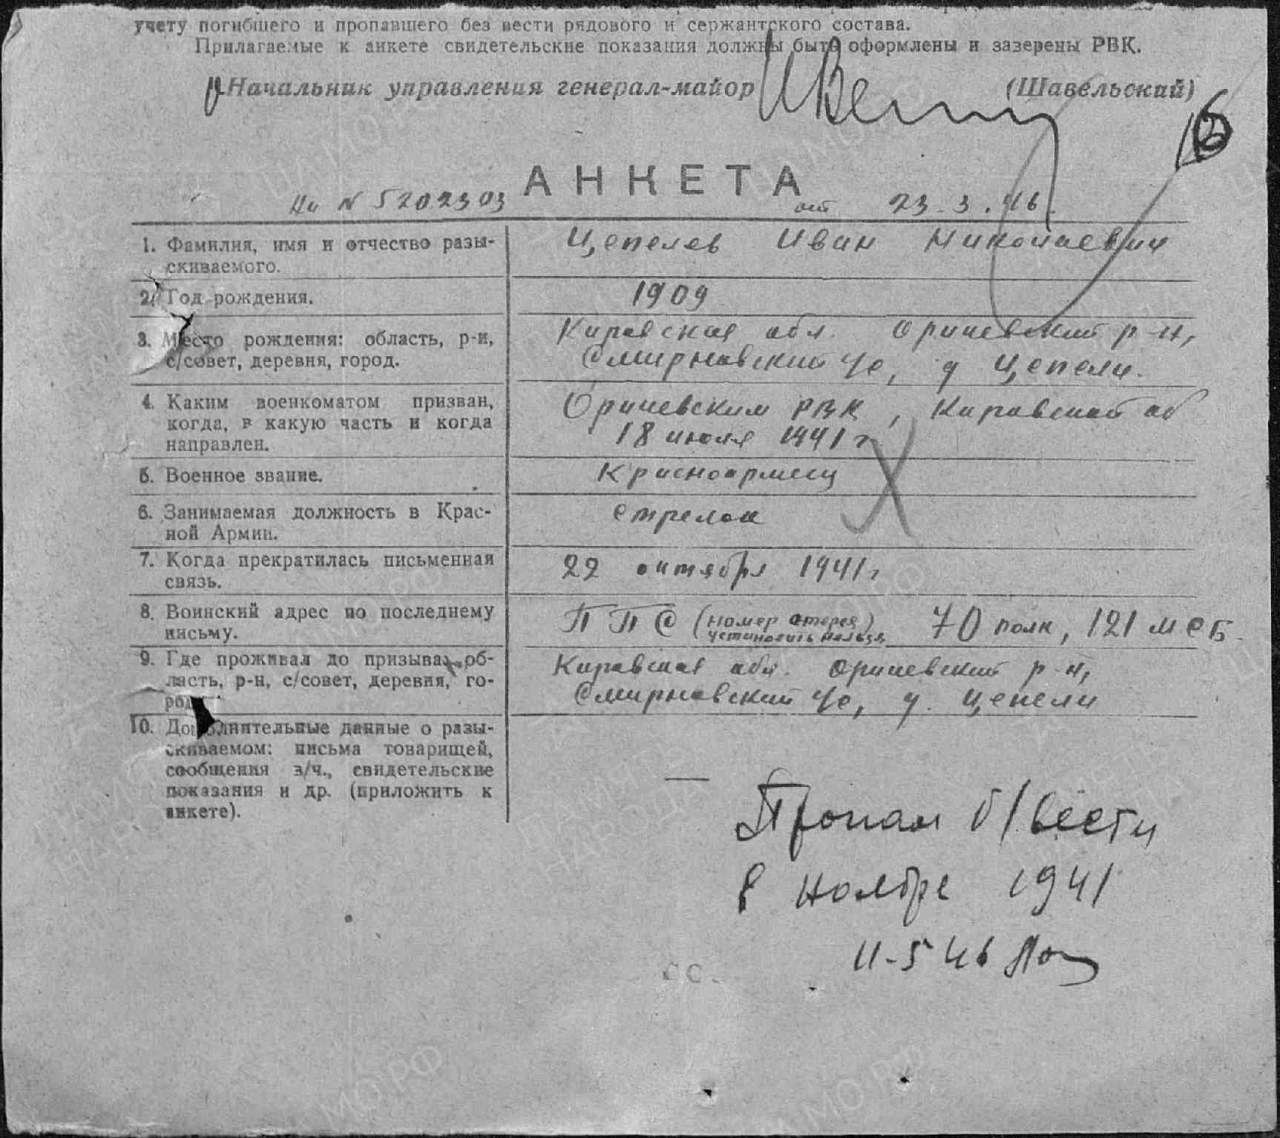 учету погибшего и пропавшего без вести рядового и сержантского состава.
Прилагаемые к анкете свидетельские показания должны быть оформлены и заверены РВК.
Начальник управления генерал-майор (Шавельский)
АНКЕТА
На № 5202303 от 23.3.46.
1. Фамилия, имя и отчество разы-
скиваемого.
Цепелев Иван Николаевич
2. Год рождения.
1909
3. Место рождения: область, р-н,
с/совет, деревня, город.
Кировская обл. Оричевский р-н,
Смирновский с/с, д Цепели.
4. Каким военкоматом призван,
когда, в какую часть и когда
направлен.
Оричевским РВК, Кировской об
18 июля 1941 г
5. Военное звание.
Красноармеец
6. Занимаемая должность в Крас-
ной Армии.
Стрелок
7. Когда прекратилась письменная
связь.
22 октября 1941 г
8. Воинский адрес по последнему
письму.
ППС (номер стерся, установить нельзя) 70 полк, 121 МСБ.
9. Где проживал до призыва, об-
ласть, р-н, с/совет, деревня, го-
род
Кировская обл. Оричевский р-н,
Смирновский с/с, д. Цепели
10. Дополнительные данные о разы-
скиваемом: письма товарищей,
сообщения в/ч., свидетельские
показания и др. (приложить к
анкете).
—
Пропал б/вести
в ноябре 1941
11-5 46